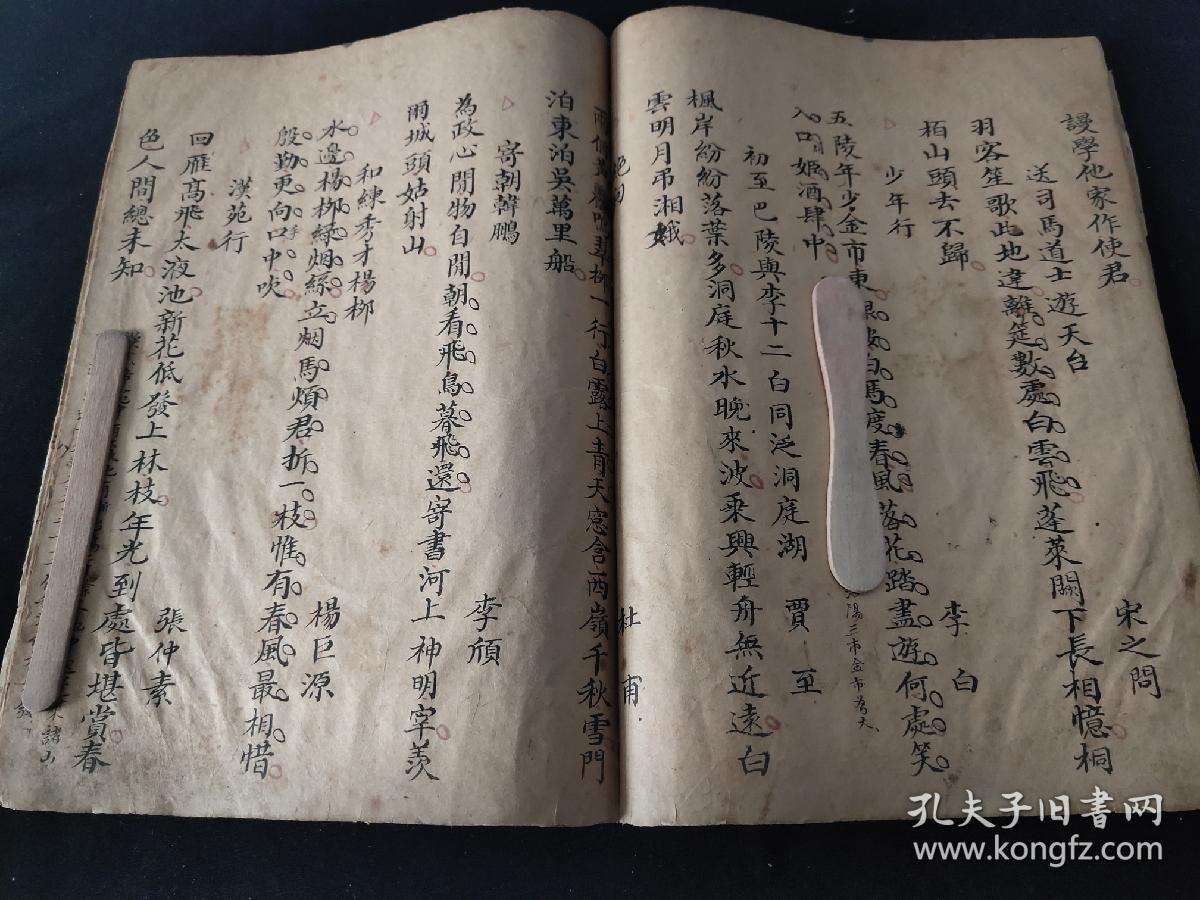 謾學他家作使君
送司馬道士遊天台
宋之問
羽客笙歌此地違離筵數處白雲飛蓬萊闕下長相憶桐
栢山頭去不歸
少年行
李白
五陵年少金市東白馬度春風落花踏盡遊何處笑
入姬酒肆中
陽三市金市為大
初至巴陵與李十二白同泛洞庭湖
賈至
楓岸紛紛落葉多洞庭秋水晚來波乘興輕舟無近遠白
雲明月弔湘娥
杜甫
翠柳一行白露上青天窓含西嶺千秋雪門
泊東泊吳萬里船
寄朝韓鵬
李頎
為政心閒物自閒朝看飛鳥暮飛還寄書河上神明宰羨
爾城頭姑射山
和練秀才楊柳
楊巨源
水邊楊柳綠烟絲立烟馬煩君折一枝惟有春風最相惜
殷勤更向口中吹
漢苑行
張仲素
回雁高飛太液池新花低發上林枝年光到處皆堪賞春
色人間總未知
孔夫子旧書网
www.kongfz.com